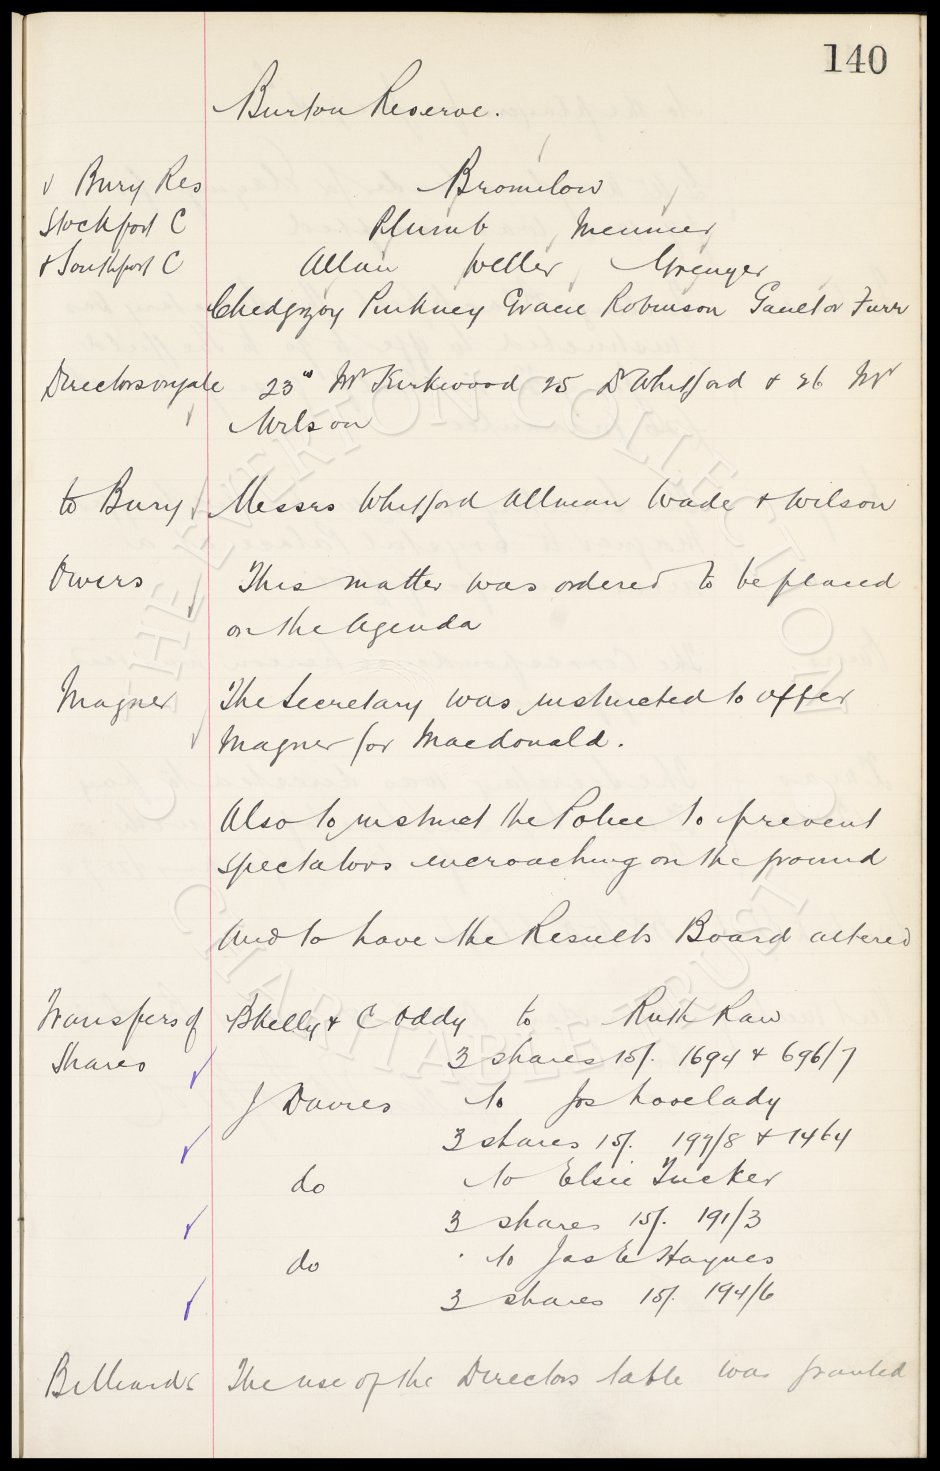 140
Burton Reserve.
Bury Res Bromilow
Stockport C Plumb Meunier
& Southport C Allan Weller Grenyer
Chedgzoy Pinkney Gracie Robinson Gaultor Furr
Directors on gate 23rd Mr Kirkwood 25 Dr Whitford & 26 Mr
Wilson
to Bury Messrs Whitford Allman Wade & Wilson
Owers This matter was ordered to be placed
on the Agenda
Magner The Secretary was instructed to offer
Magner for Macdonald.
Also to instruct the Police to prevent
spectators encroaching on the ground
And to have the Results Board altered
Transfers of B Kelly & C Oddy to Ruth Raw
Shares 3 shares 15/. 1694 & 696/7
J Davies to Jos Lovelady
3 shares 15/. 197/8 & 1464
do to Elsie Tucker
3 shares 15/. 191/3
do to Jas E Haynes
3 shares 15/. 194/6
Billiards The use of the Directors table was granted
THE EVERTON COLLECTION
CHARITABLE TRUST